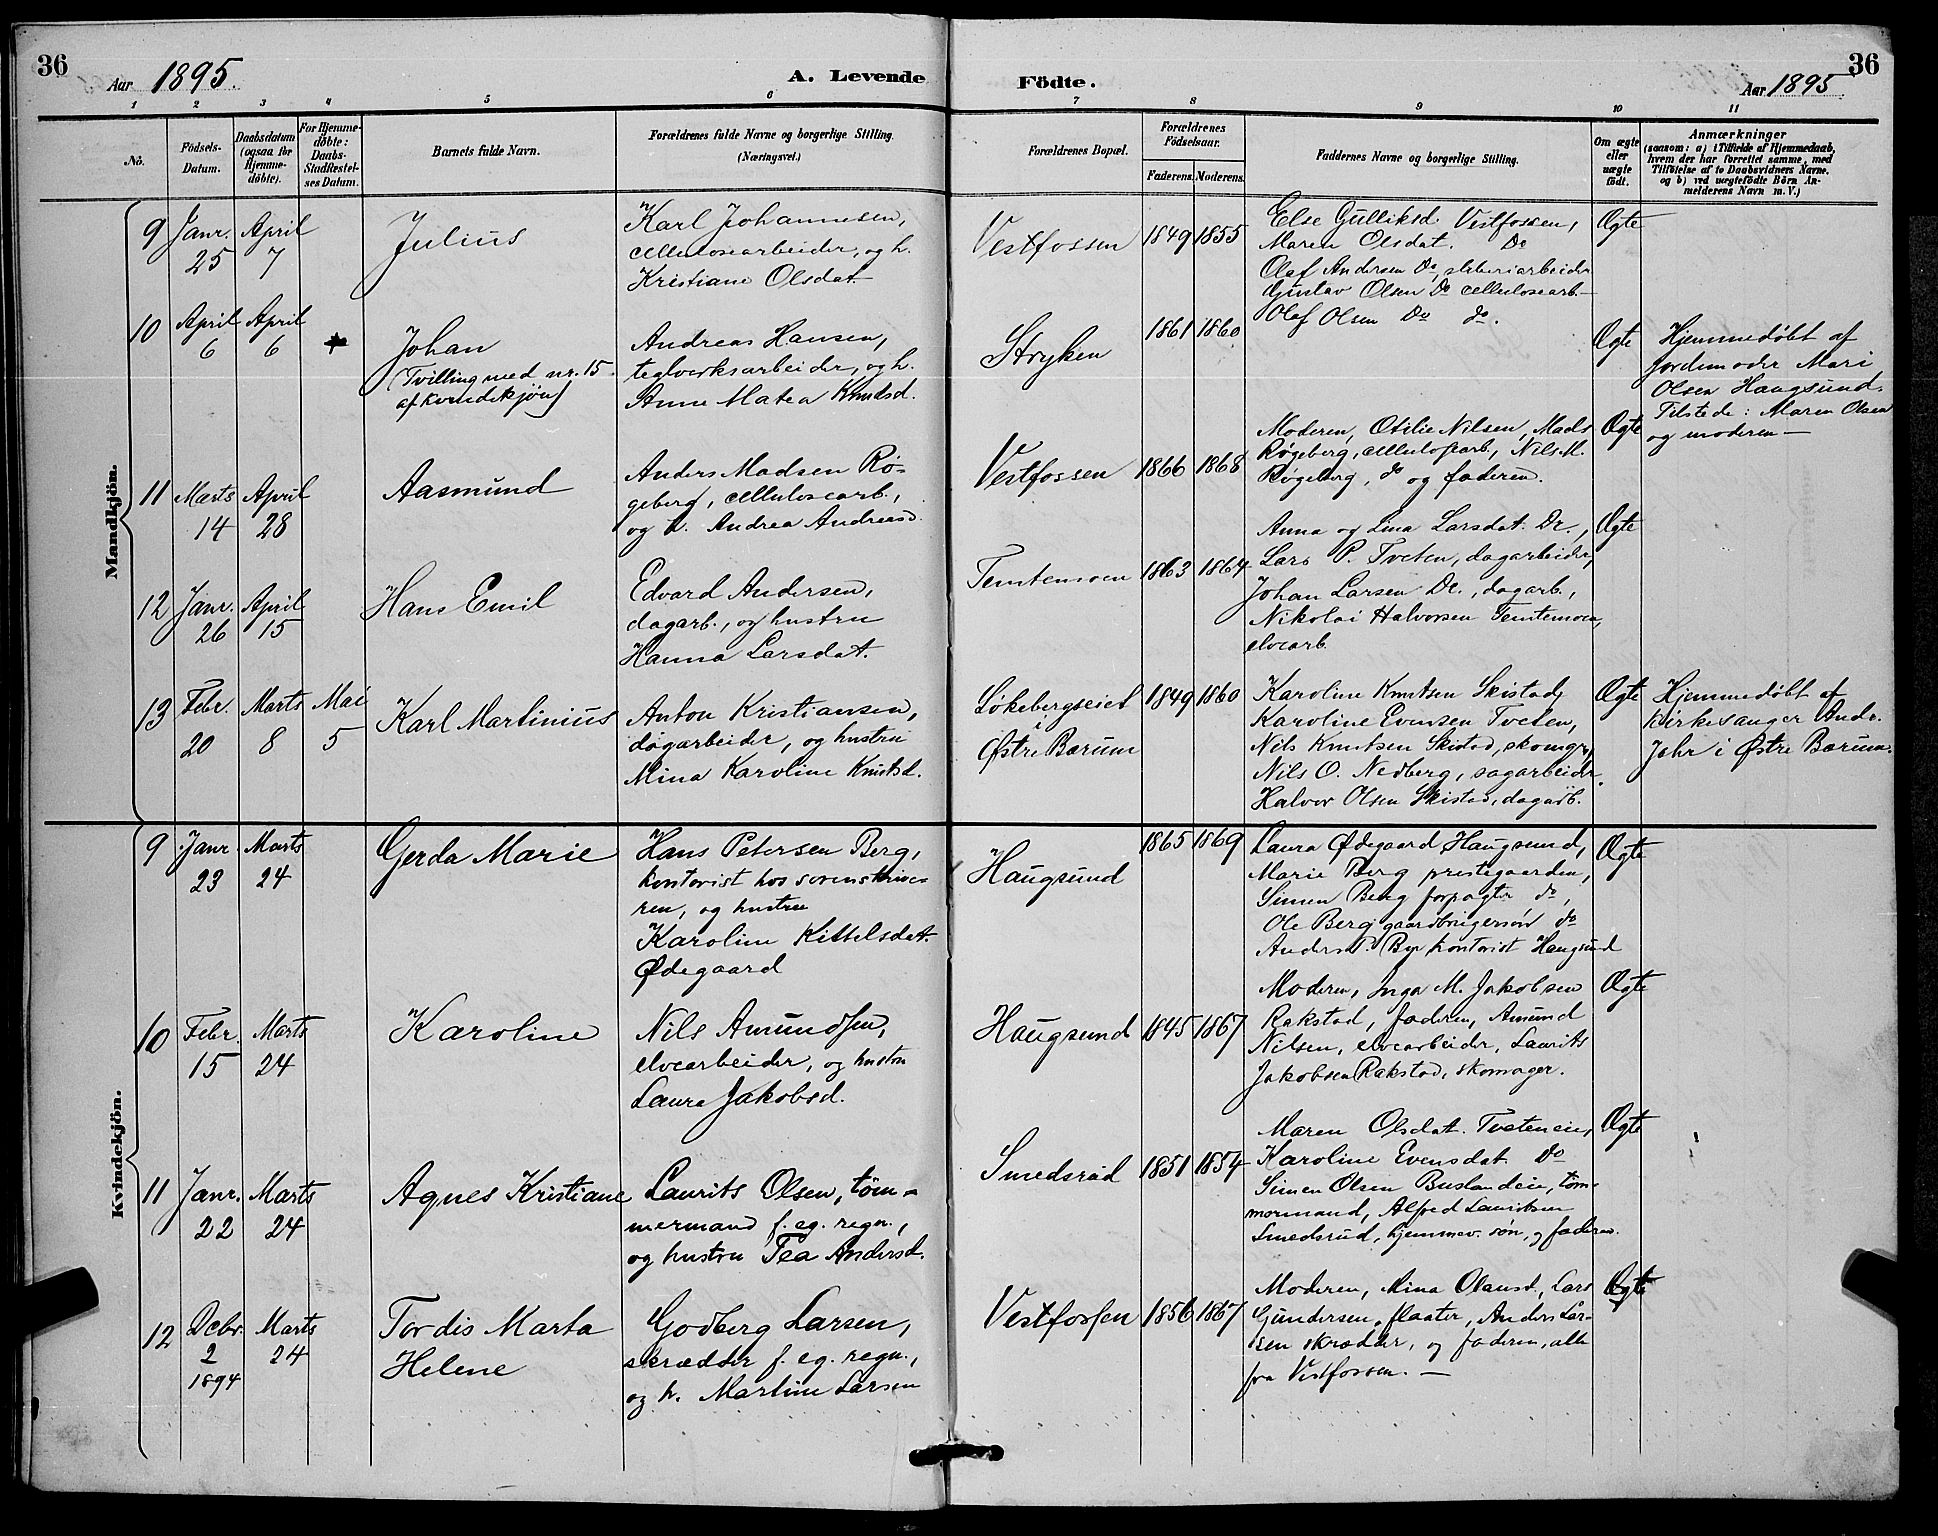 36
Aar 1895.
A. Levende
Födte.
Aar 1895.
36
1 2 3 4 5 6 7 8 9 10 11
No.
Födsels-
Datum.
Daabsdatum
(ogsaa for
Hjemme-
döbte).
For Hjemme-
döbte:
Daabs-
Stadfæstel-
ses Datum.
Barnets fulde Navn.
Forældrenes fulde Navne og borgerlige Stilling.
(Næringsvei.)
Forældrenes Bopæl.
Forældrenes
Födselsaar.
Faderens. Moderens.
Faddernes Navne og borgerlige Stilling.
Om ægte
eller
uægte
födt.
Anmærkninger
(saasom: a) i Tilfælde af Hjemmedaab,
hvem der har forrettet samme, med
Tilföielse af to Daabsvidners Navne.
og b) ved uægtefödte Börn An-
melderens Navn m. V.)
Mandkjön.
9
Janr.
25
April
7
Julius
Karl Johannesen,
cellulosearbeider, og h.
Kristiane Olsdat.
Vestfossen
1849
1855
Else Gulliksd. Vestfossen,
Maren Olsdat. Do
Olaf Andersen Do, sliberiarbeider
Gustav Olsen Do cellulosearb.
Olaf Olsen Do do.
Ægte
10
April
6
April
6
Johan
(Tvilling med nr. 15
af kvindekjøn)
Andreas Hansen,
teglverksarbeider, og h.
Anne Matea Knudsd.
Stryken
1861
1860
Ægte
Hjemmedøbt af
jordemoder Mari
Olsen Haugsund.
Tilstede: Maren Olsen
og moderen —
11
Marts
14
April
28
Aasmund
Anders Madsen Rø-
geberg, cellulosearb.,
og h. Andrea Andreasd.
Vestfossen
1866
1868
Moderen, Otilie Nilsen, Mads
Røgeberg, cellulosearb., Nils M.
Røgeberg, do og faderen.
Ægte
12
Janr.
26
April
15
Hans Emil
Edvard Andersen,
dagarb., og hustru
Hanna Larsdat.
Temtemoen
1863
1864
Anna og Lina Larsdat. Do.,
Lars P. Tveten, dagarbeider,
Johan Larsen Do., dagarb.,
Nikolai Halvorsen Temtemoen,
elvearb.
Ægte
13
Febr.
20
Marts
8
Mai
5
Karl Martinius
Anton Kristiansen,
dagarbeider, og hustru
Mina Karoline Knutsd.
Løkebergseiet
i
Østre Bærum
1849
1860
Karoline Knutsen Skistad,
Karoline Evensen Tveten,
Nils Knutsen Skistad, skomgr.,
Nils O. Nedberg, sagarbeider,
Halvor Olsen Skistad, dagarb.
Ægte
Hjemmedøbt af
kirkesanger Andr.
Jahr i Østre Bærum.
Kvindekjön.
9
Janr.
23
Marts
24
Gerda Marie
Hans Petersen Berg,
kontorist hos sorenskrive-
ren, og hustru
Karoline Kittelsdat.
Ødegaard
Haugsund
1865
1869
Laura Ødegaard Haugsund,
Marie Berg prestegaarden,
Simen Berg forpagter do,
Ole Berg gaardbrugersøn do
Anders P. Bye kontorist Haugsund
Ægte
10
Febr.
15
Marts
24
Karoline
Nils Amundsen,
elvearbeider, og hustru
Laura Jakobsd.
Haugsund
1845
1867
Moderen, Inga M. Jakobsen
Rakstad, faderen, Amund
Nilsen, elvearbeider, Laurits
Jakobsen Rakstad, skomager.
Ægte
11
Janr.
22
Marts
24
Agnes Kristiane
Laurits Olsen, tøm-
mermand f. eg. regn.,
og hustru Tea Andersd.
Smedsrud
1851
1854
Maren Olsdat. Tveteneie,
Karoline Evensdat. Do
Simen Olsen Buslandeie, tøm-
mermand, Alfred Lauritsen
Smedsrud, hjemmev. søn, og faderen.
Ægte
12
Decbr.
2
1894
Marts
24
Tordis Marta
Helene
Godberg Larsen,
skrædder f. eg. regn.,
og h. Martine Larsen
Vestfossen
1856
1867
Moderen, Mina Olausd., Lars
Gundersen, fløater, Anders Lar-
sen skrædder, og faderen, alle
fra Vestfossen. —
Ægte